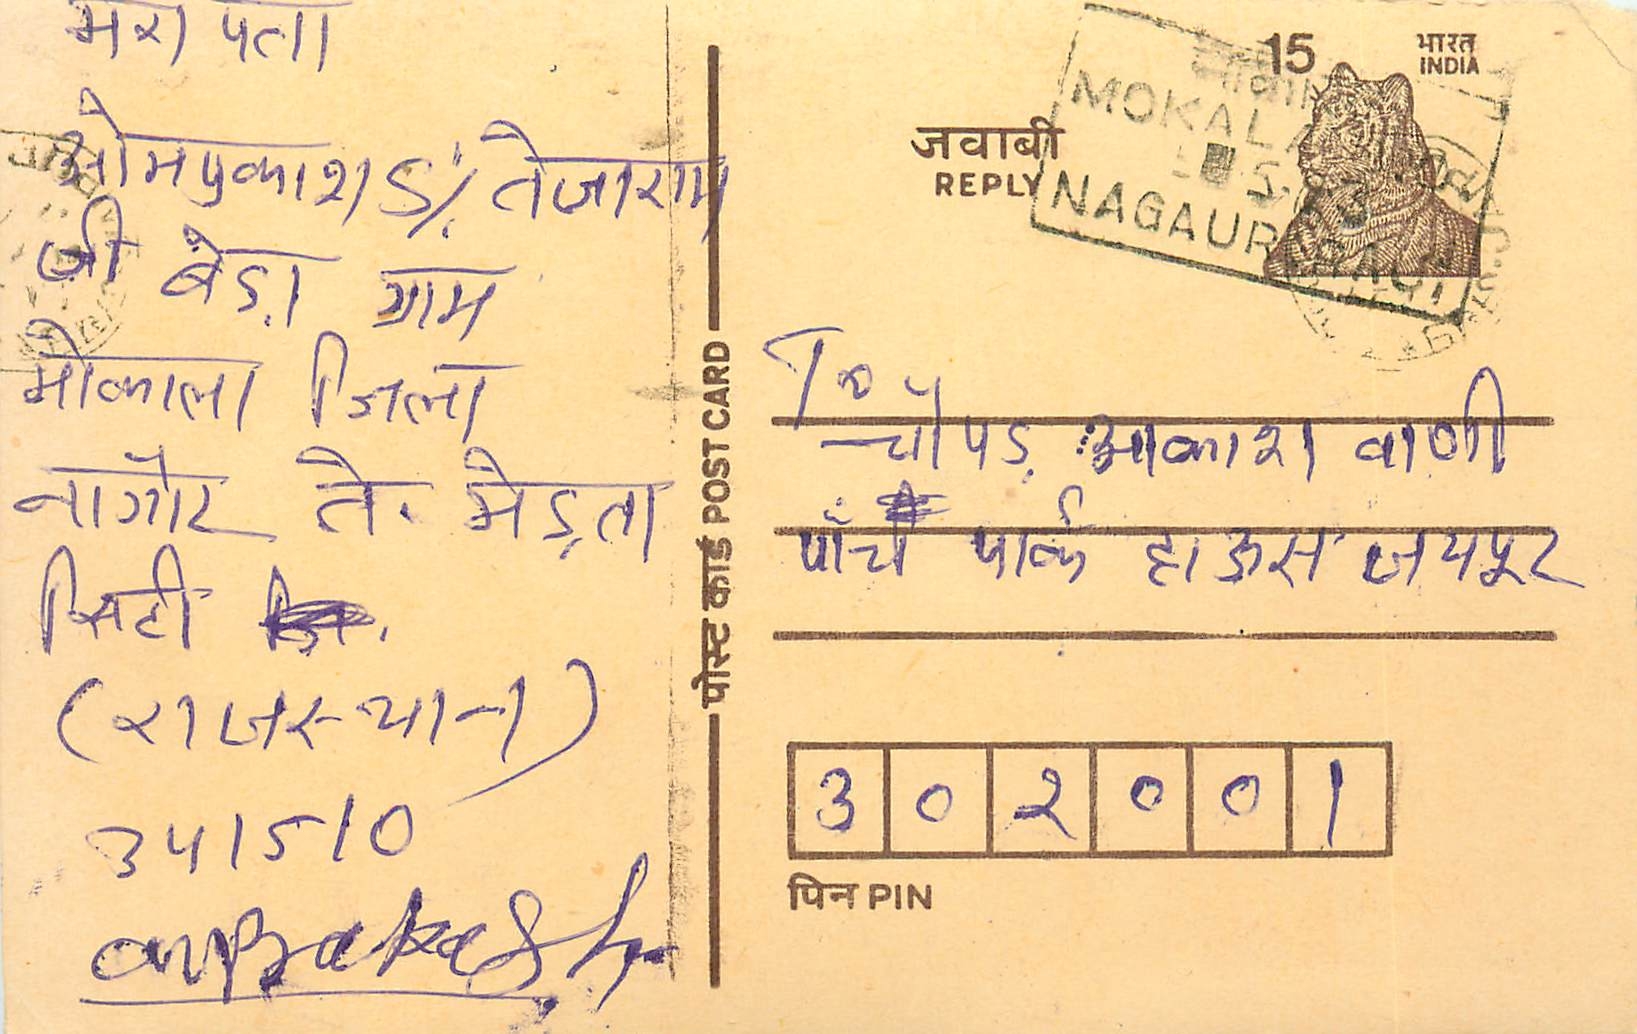 मेरा पता
ओमप्रकाश S/ तेजाराम
जी बेड़ा ग्राम
मोकाला जिला
नागौर ते. मेड़ता
सिटी
(राजस्थान)
341510
omprakash
पोस्ट कार्ड POST CARD
जवाबी
REPLY
15
भारत
INDIA
MOKALA
NAGAUR
To
चौपड़ आकाश वाणी
पाँच पार्क हाऊस जयपूर
302001
पिन PIN